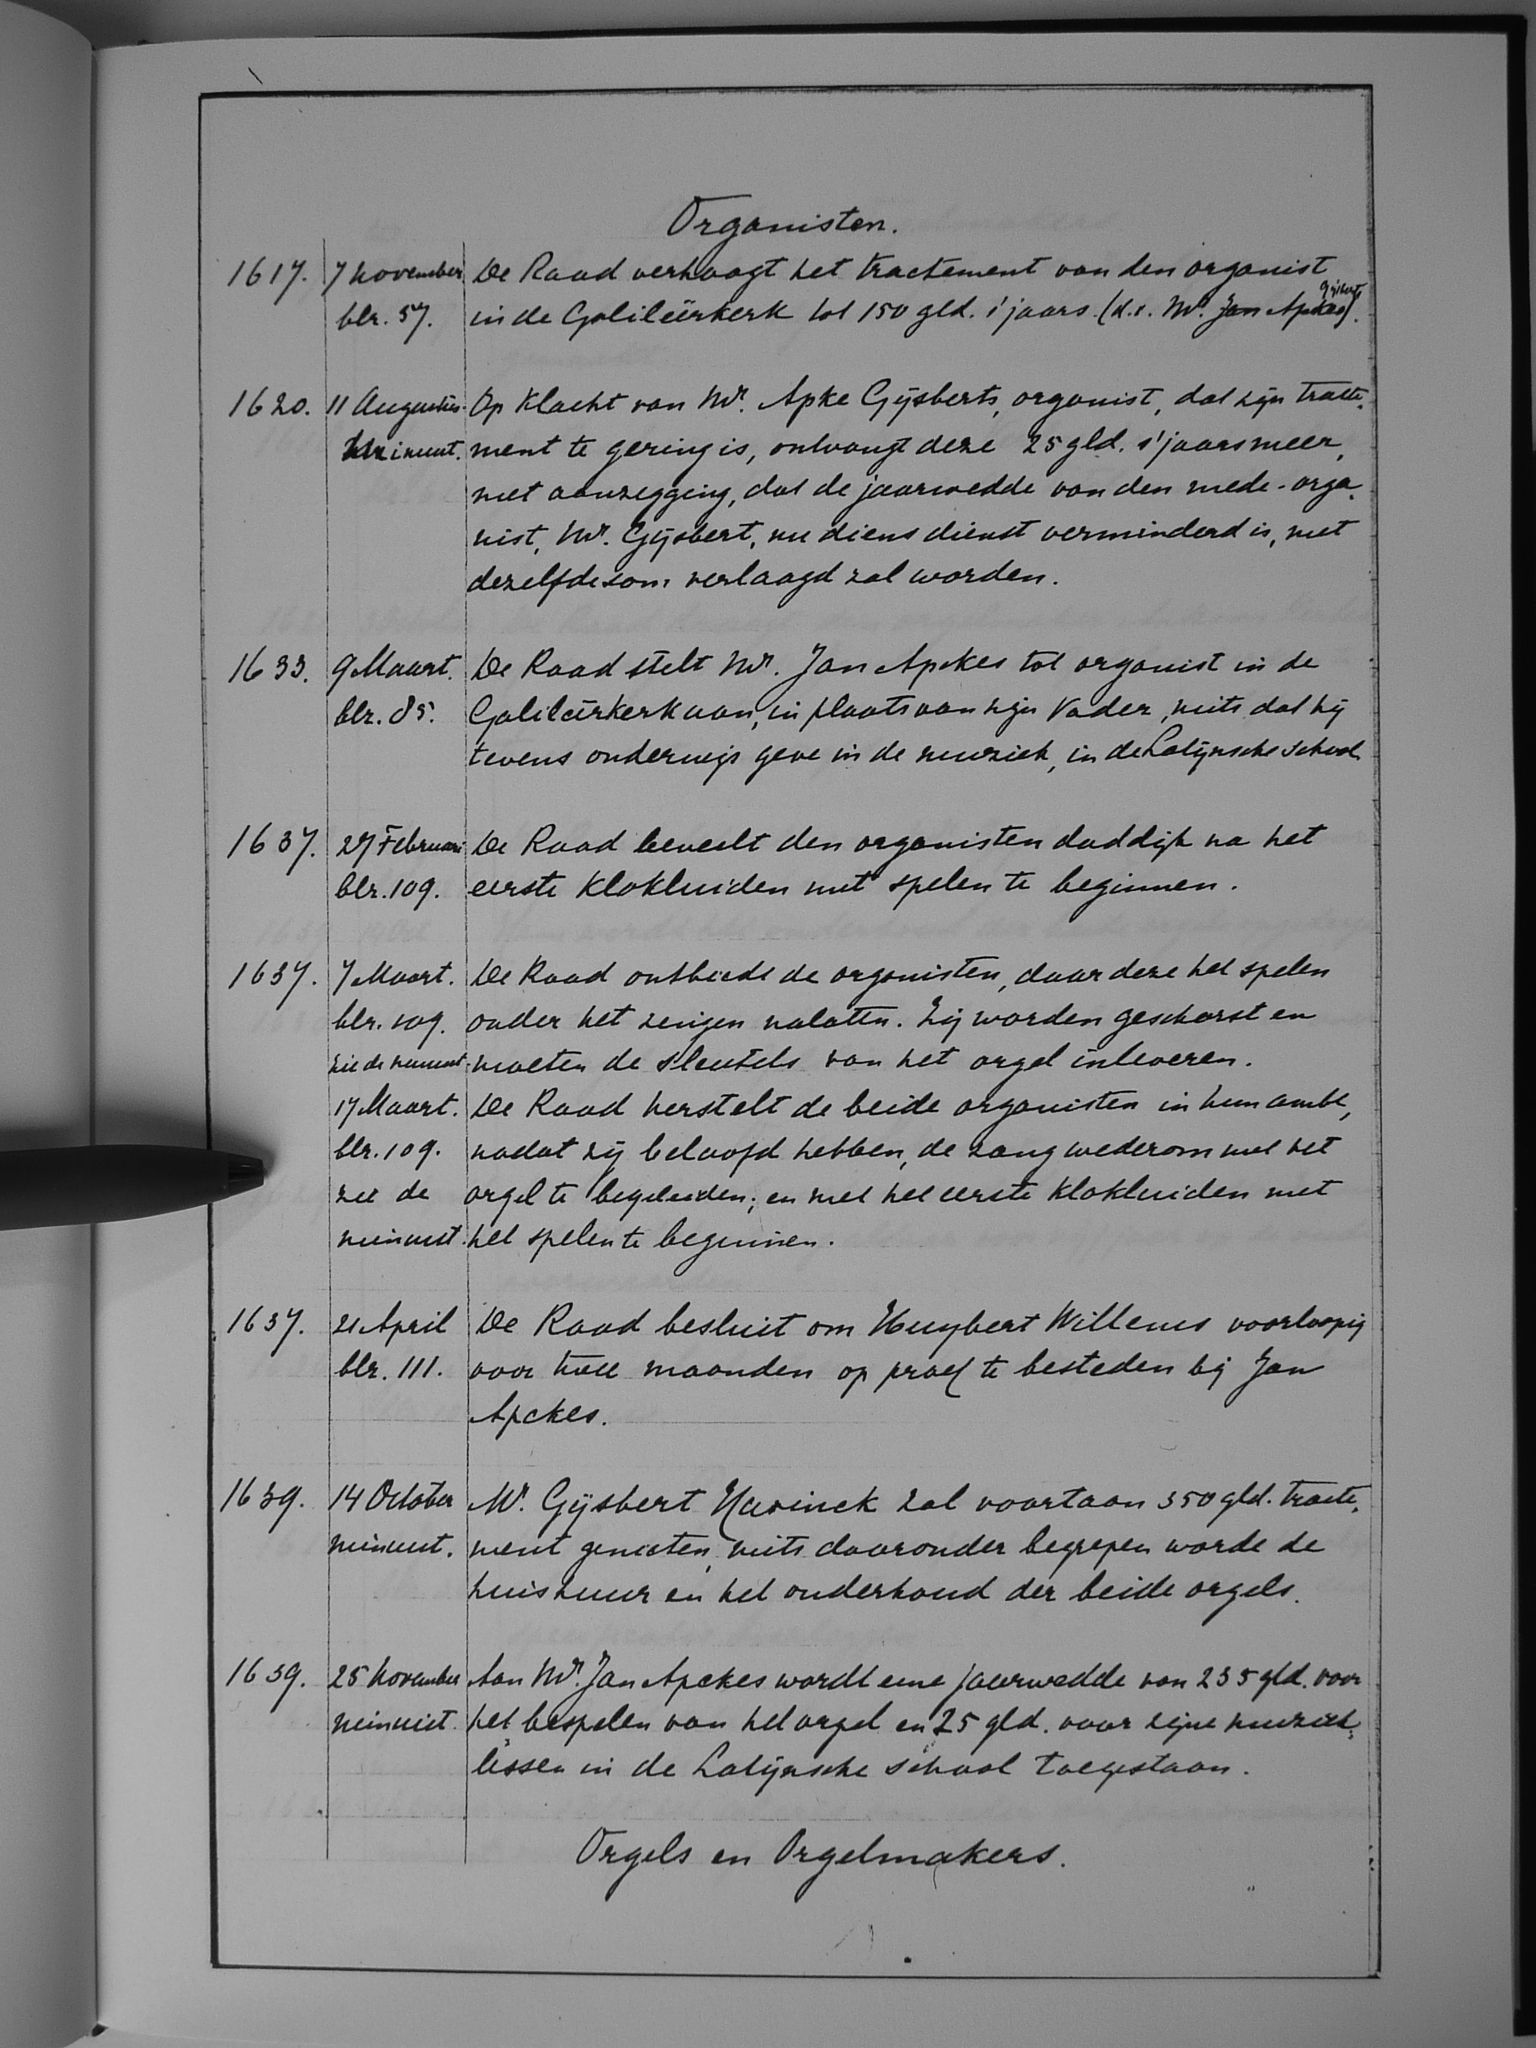 Organisten.
1617. 7 november De Raad verhoogt het tractement van den organist
blz. 57. in de Galileërkerk tot 150 gld. 's jaars (d.i. Mr. Jan Apckes).
Gijsbert
1620. 11 Augustus Op klacht van Mr. Apke Gijsberts, organist, dat zijn tracte-
minuut. ment te gering is, ontvangt deze 25 gld. 's jaars meer,
met aanzegging, dat de jaarwedde van den mede-orga-
nist, Mr. Gijsbert, nu diens dienst verminderd is, met
dezelfde som verlaagd zal worden.
1633. 9 Maart. De Raad stelt Mr. Jan Apckes tot organist in de
blz. 85. Galileërkerk aan, in plaats van zijn Vader, mits dat hij
tevens onderwijs geve in de muziek, in de Latijnsche school
1637. 27 Februari De Raad beveelt den organisten dadelijk na het
blz. 109. eerste klokluiden met spelen te beginnen.
1637. 7 Maart. De Raad ontbiedt de organisten, daar deze het spelen
blz. 109. onder het zingen nalaten. Zij worden geschorst en
zie de minuut. moeten de sleutels van het orgel inleveren.
17 Maart. De Raad herstelt de beide organisten in hun ambt,
blz. 109. nadat zij beloofd hebben, de zang wederom met het
zie de orgel te begeleiden; en met het eerste klokluiden met
minuut. het spelen te beginnen.
1637. 21 April De Raad besluit om Huybert Willems voorloopig
blz. 111. voor twee maanden op proef te besteden bij Jan
Apckes.
1639. 14 October Mr. Gijsbert Havinck zal voortaan 350 gld. tracte-
minuut. ment genieten, mits daaronder begrepen worde de
huishuur en het onderhoud der beide orgels.
1639. 25 November Aan Mr. Jan Apckes wordt eene jaarwedde van 235 gld. voor
minuut. het bespelen van het orgel en 25 gld. voor zijne muziek-
lessen in de Latijnsche school toegestaan.
Orgels en Orgelmakers.